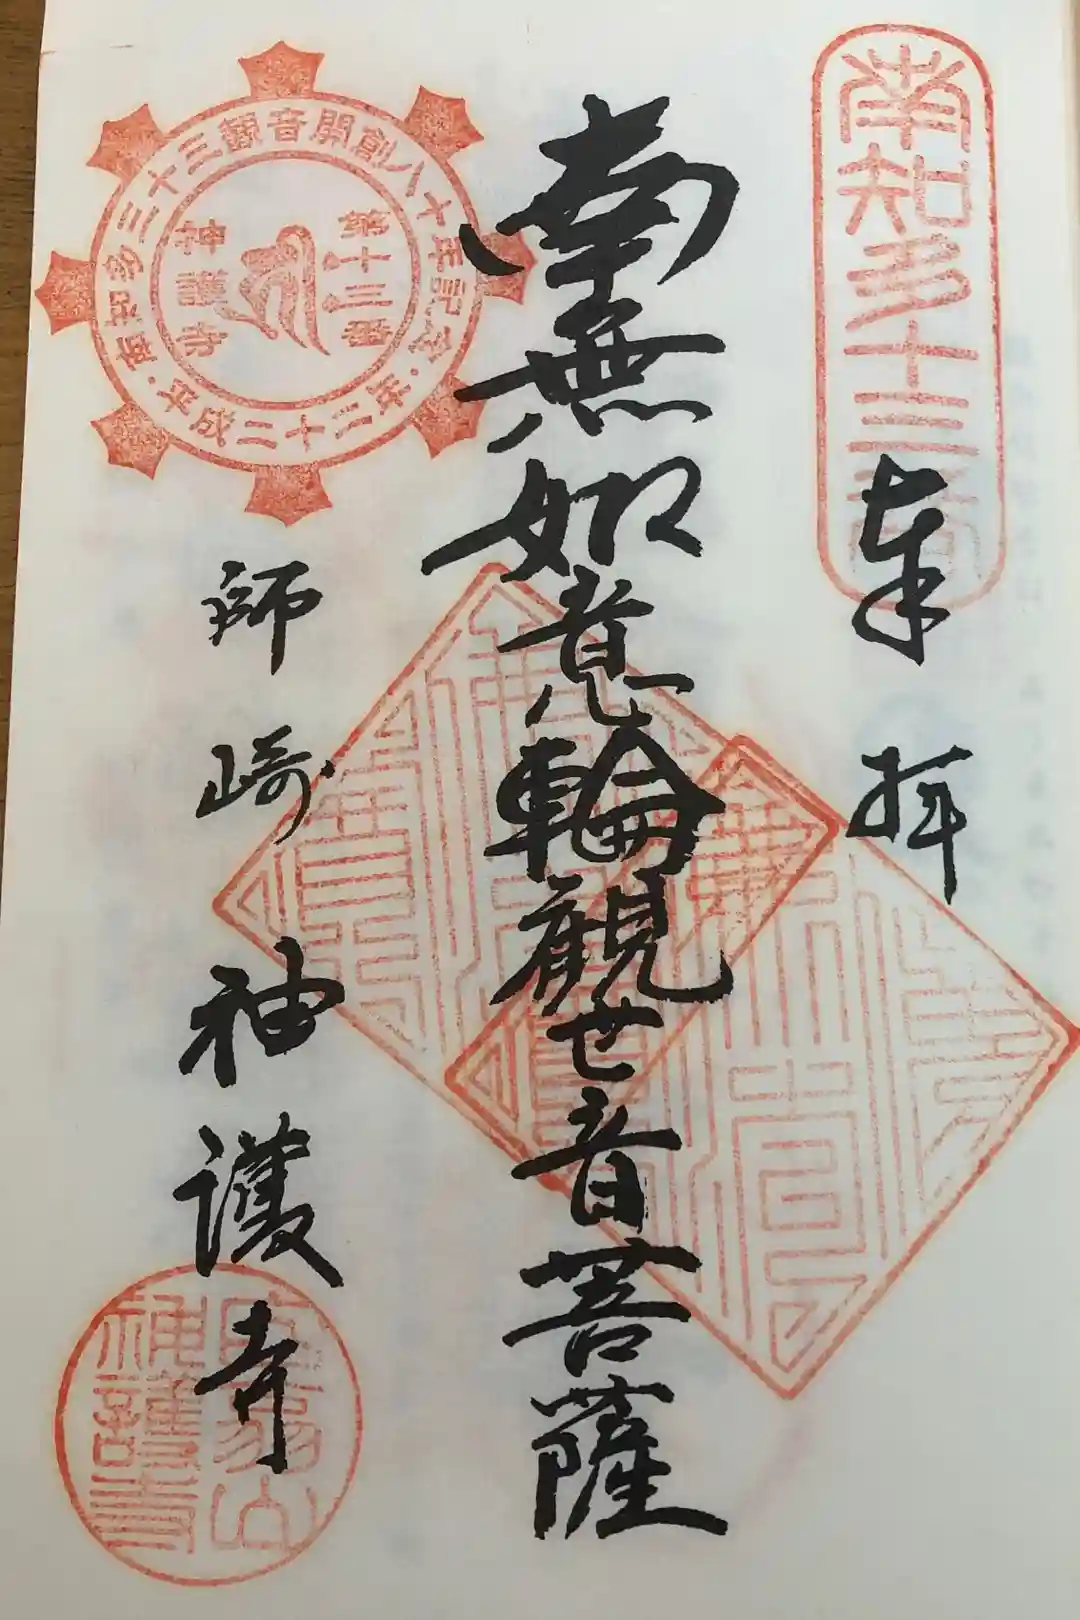 南知多十三番
奉拝
南無如意輪観世音菩薩
南知多三十三観音開創八十年記念・平成二十二年
第十三番
神護寺
師崎神護寺
神護寺